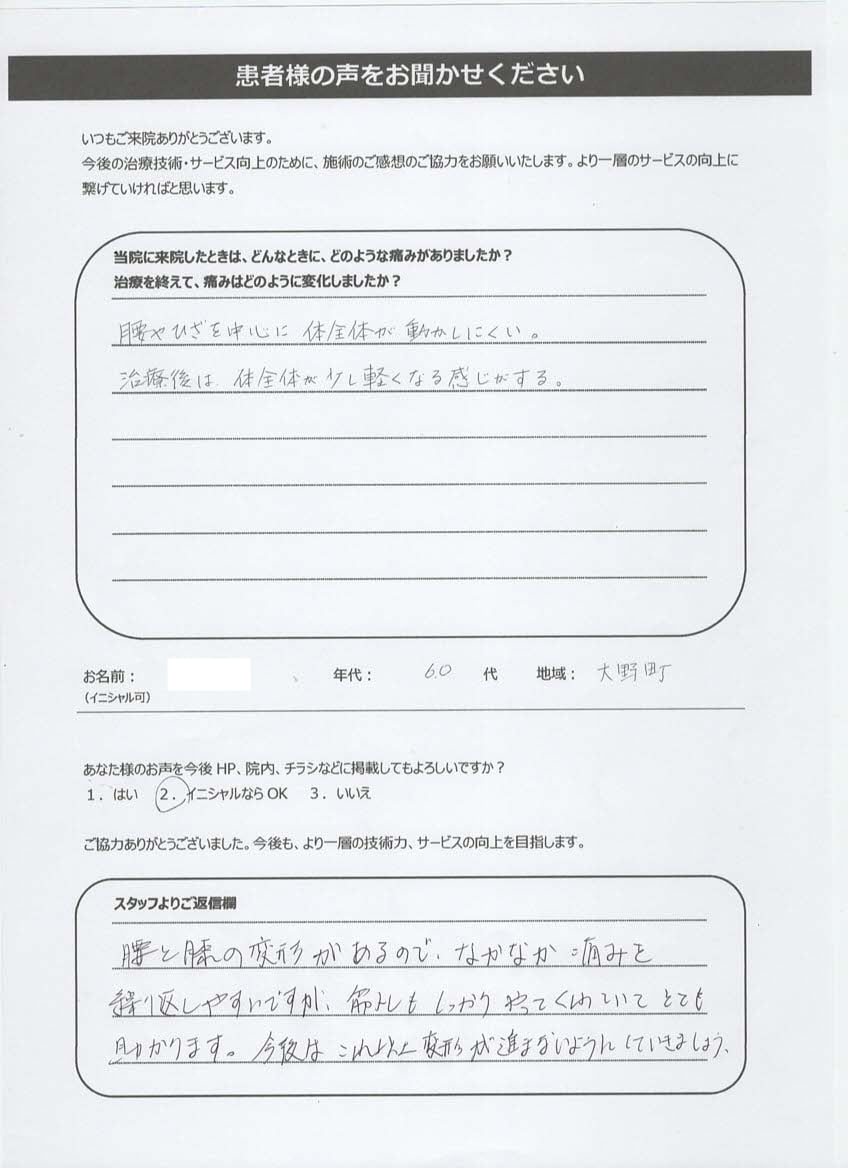 患者様の声をお聞かせください
いつもご来院ありがとうございます。
今後の治療技術・サービス向上のために、施術のご感想のご協力をお願いいたします。より一層のサービスの向上に
繋げていければと思います。
当院に来院したときは、どんなときに、どのような痛みがありましたか？
治療を終えて、痛みはどのように変化しましたか？
腰やひざを中心に 体全体が 動かしにくい。
治療後は、体全体が少し軽くなる感じがする。
お名前： 年代： 60 代 地域： 大野町
（イニシャル可）
あなた様のお声を今後 HP、院内、チラシなどに掲載してもよろしいですか？
1．はい 2．イニシャルなら OK 3．いいえ
ご協力ありがとうございました。今後も、より一層の技術力、サービスの向上を目指します。
スタッフよりご返信欄
腰と膝の変形があるので、なかなか痛みを
繰り返しやすいですが、筋トレもしっかりやってくれていてとても
助かります。今後はこれ以上変形が進まないようにしていきましょう、